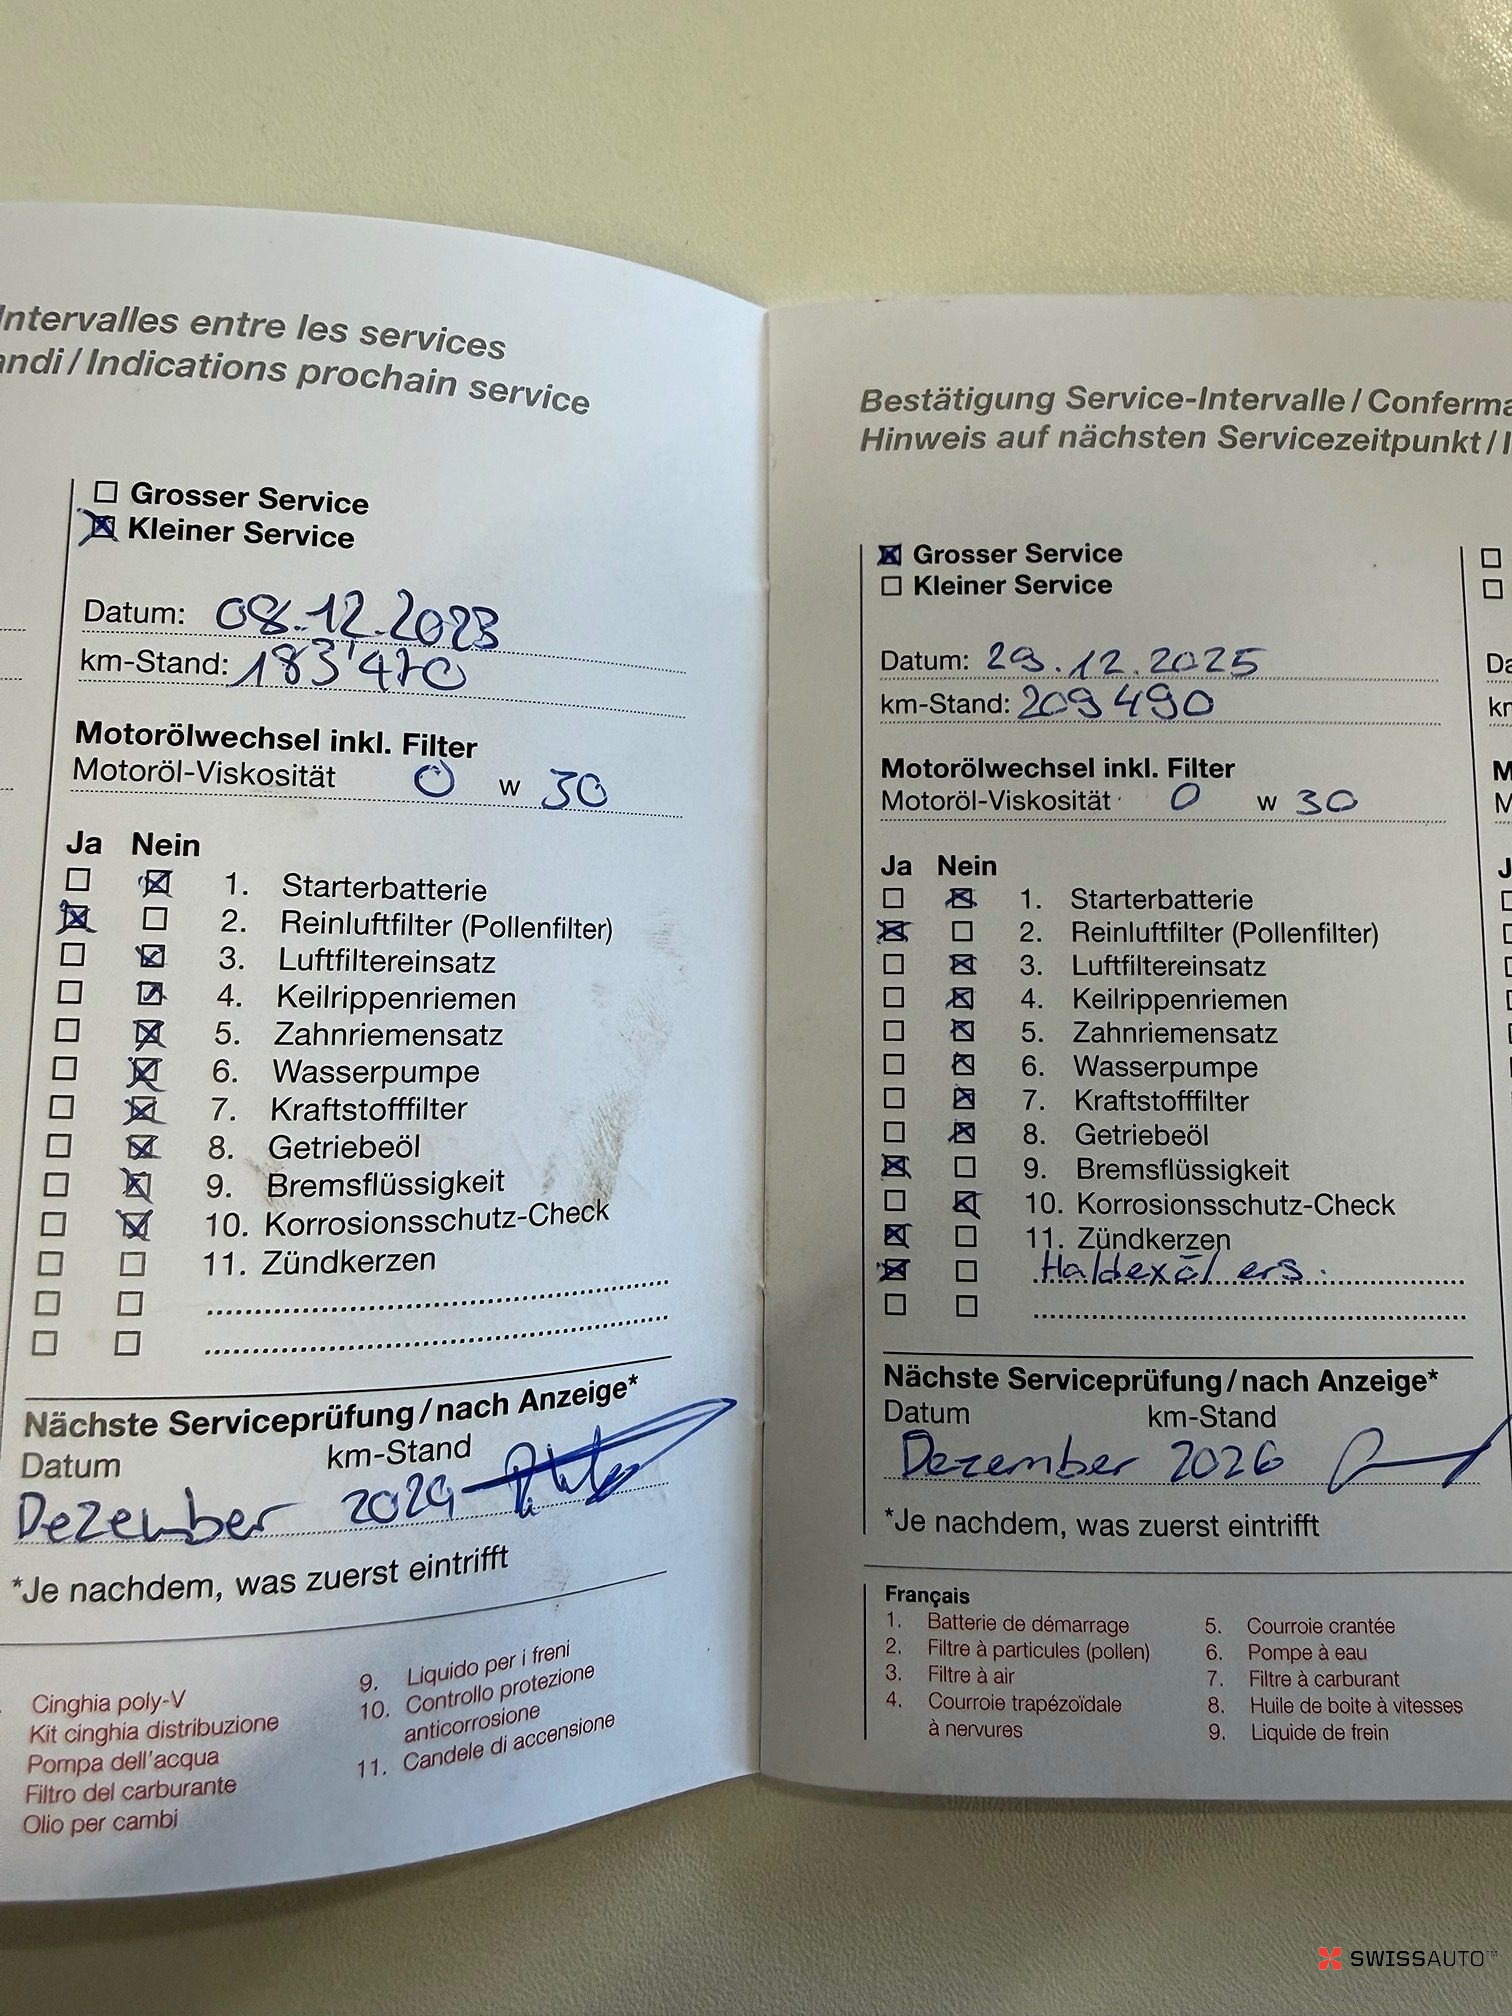 Intervalles entre les services
andi / Indications prochain service
Grosser Service
Kleiner Service
Datum: 08.12.2023
km-Stand: 183'470
Motorölwechsel inkl. Filter
Motoröl-Viskosität 0 w 30
Ja Nein
1. Starterbatterie
2. Reinluftfilter (Pollenfilter)
3. Luftfiltereinsatz
4. Keilrippenriemen
5. Zahnriemensatz
6. Wasserpumpe
7. Kraftstofffilter
8. Getriebeöl
9. Bremsflüssigkeit
10. Korrosionsschutz-Check
11. Zündkerzen
Nächste Serviceprüfung / nach Anzeige*
Datum km-Stand
Dezember 2024
*Je nachdem, was zuerst eintrifft
Cinghia poly-V
Kit cinghia distribuzione
Pompa dell'acqua
Filtro del carburante
Olio per cambi
9. Liquido per i freni
10. Controllo protezione
anticorrosione
11. Candele di accensione
Bestätigung Service-Intervalle / Conferma
Hinweis auf nächsten Servicezeitpunkt / I
Grosser Service
Kleiner Service
Datum: 29.12.2025
km-Stand: 209490
Motorölwechsel inkl. Filter
Motoröl-Viskosität 0 w 30
Ja Nein
1. Starterbatterie
2. Reinluftfilter (Pollenfilter)
3. Luftfiltereinsatz
4. Keilrippenriemen
5. Zahnriemensatz
6. Wasserpumpe
7. Kraftstofffilter
8. Getriebeöl
9. Bremsflüssigkeit
10. Korrosionsschutz-Check
11. Zündkerzen
Haldexöl ers.
Nächste Serviceprüfung / nach Anzeige*
Datum km-Stand
Dezember 2026
*Je nachdem, was zuerst eintrifft
Français
1. Batterie de démarrage
2. Filtre à particules (pollen)
3. Filtre à air
4. Courroie trapézoïdale
à nervures
5. Courroie crantée
6. Pompe à eau
7. Filtre à carburant
8. Huile de boite à vitesses
9. Liquide de frein
SWISSAUTO™